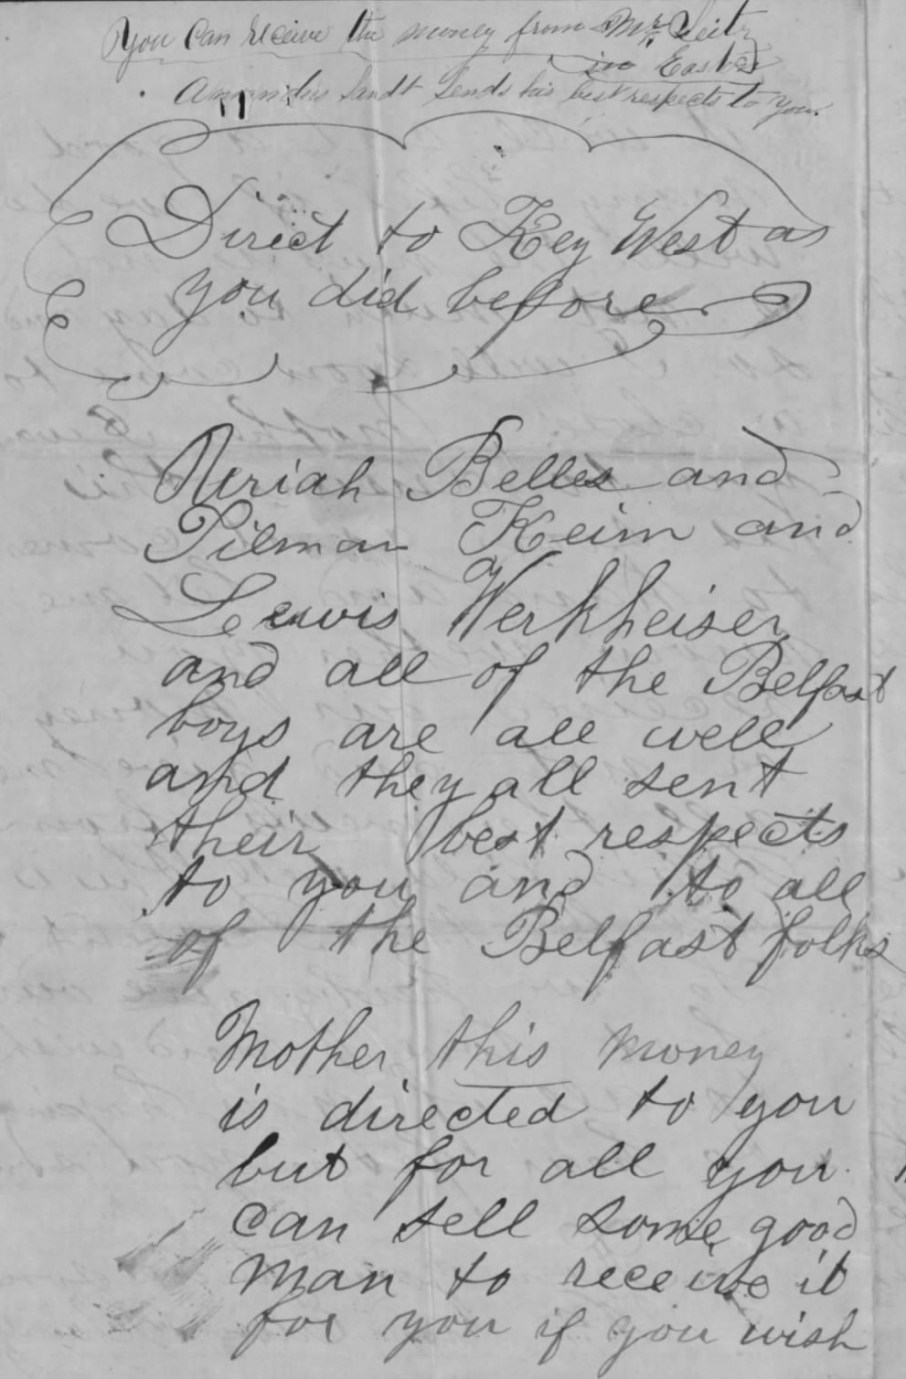 You can receive the money from Mr. Seitz
in Easton
Amandus Sandt Sends his best respects to you.
Direct to Key West as
you did before
Ureiah Belles and
Pilman Keim and
Lewis Werkheiser
and all of the Belfast
boys are all well
and they all sent
their best respects
to you and to all
of the Belfast folks
Mother this money
is directed to you
but for all you
can sell some good
man to receive it
for you if you wish